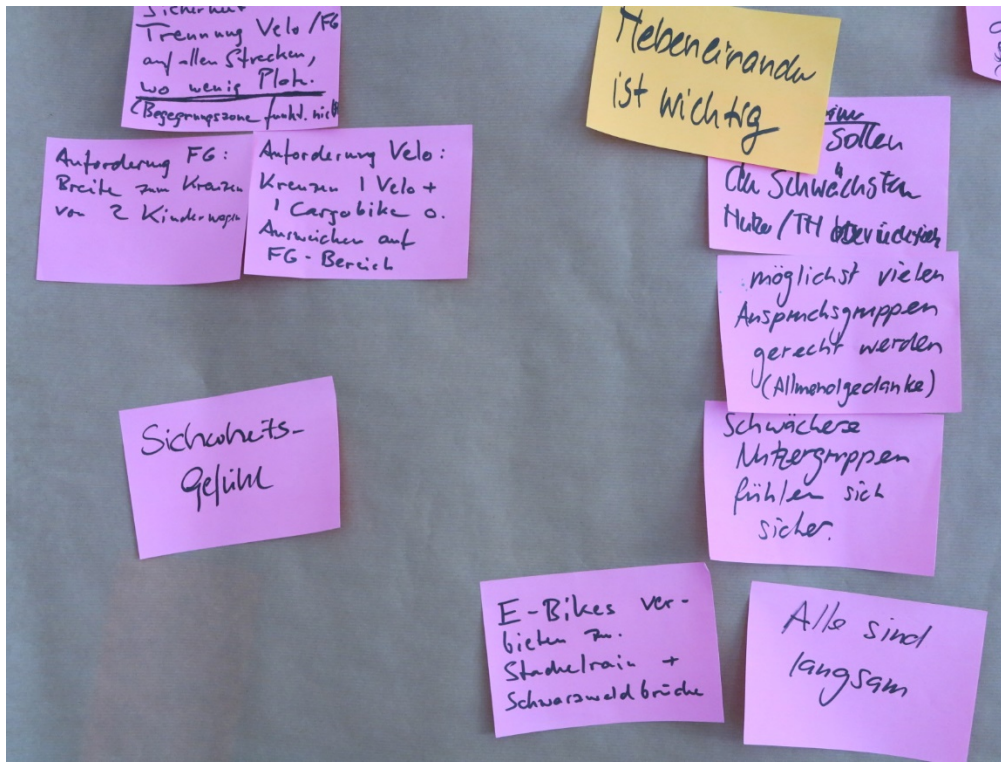 Sicherheit
Trennung Velo/FG
auf allen Strecken,
wo wenig Platz.
(Begegnungszone funkt. nicht
Anforderung FG:
Breite zum Kreuzen
von 2 Kinderwagen
Anforderung Velo:
Kreuzen 1 Velo +
1 Cargobike o.
Ausweichen auf
FG-Bereich
Sicherheits-
Gefühl
Nebeneinander
ist wichtig
Sollen
die Schwächsten
Nutzer/TN
möglichst vielen
Anspruchsgruppen
gerecht werden
(Allmendgedanke)
Schwächere
Nutzergruppen
fühlen sich
sicher.
E-Bikes ver-
bieten zw.
Stachelrain +
Schwarzwaldbrücke
Alle sind
langsam